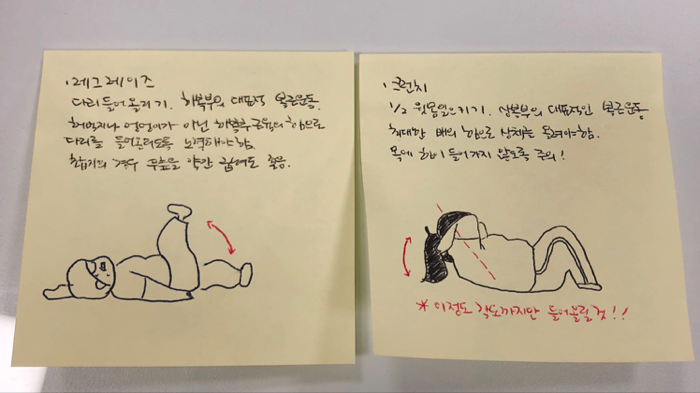 · 레그레이즈
다리들어올리기. 하복부의 대표적 복근운동.
허벅지나 엉덩이가 아닌 하복부 근육의 힘으로
다리를 들어올리도록 노력해야함.
초심자의 경우 무릎을 약간 굽혀도 좋음.
· 크런치
1/2 윗몸일으키기. 상복부의 대표적인 복근운동
최대한 배의 힘으로 상체를 올려야함.
목에 힘이 들어가지 않도록 주의!
* 이정도 각도까지만 들어올릴 것!!